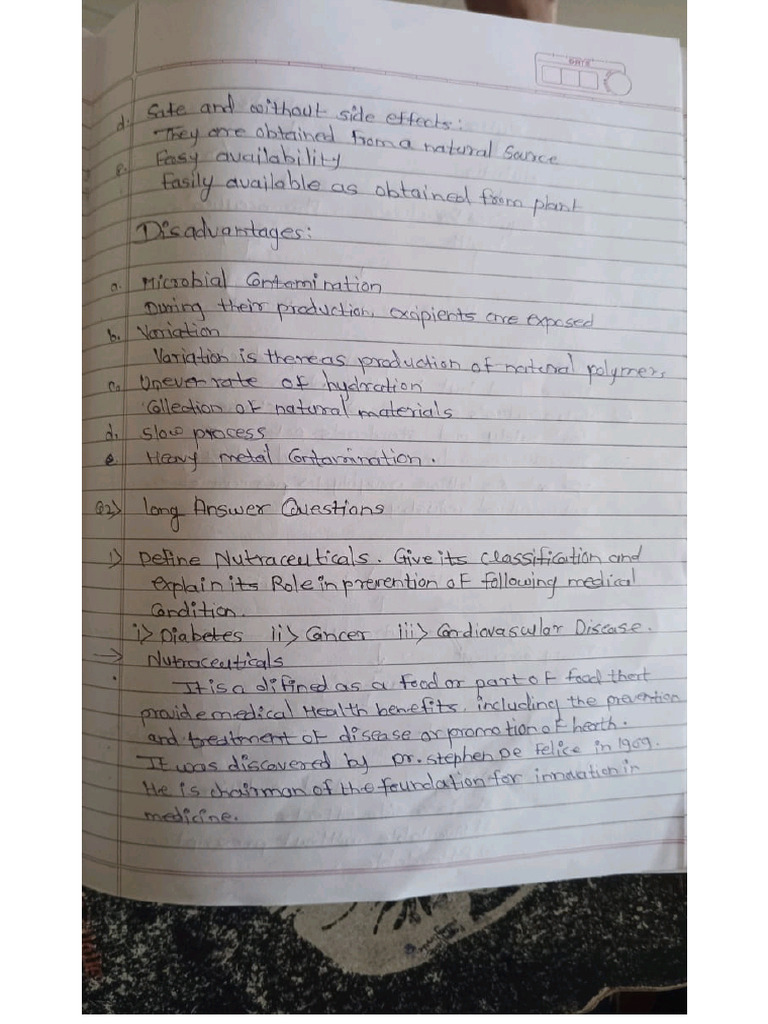 DATE
d. Safe and without side effects:
They are obtained from a natural Source
e. Easy availability
Easily available as obtained from plant
Disadvantages:
a. Microbial Contamination
During their production, excipients are exposed
b. Variation
Variation is there as production of natural polymers
c. Unever rate of hydration
Collection of natural materials
d. Slow process
e Heavy metal Contamination.
Q2> long Answer Questions
1) Define Nutraceuticals. Give its classification and
explain its Role in prevention of following medical
Condition.
i> Diabetes ii> Cancer iii> Cardiovascular Disease.
→ Nutraceuticals
It is a difined as a food or part of food thert
provide medical Health benefits, including the prevention
and treatment of disease or promotion of herth.
It was discovered by Dr. stephen De Felice in 1909.
He is chairman of the foundation for innovation in
medicine.